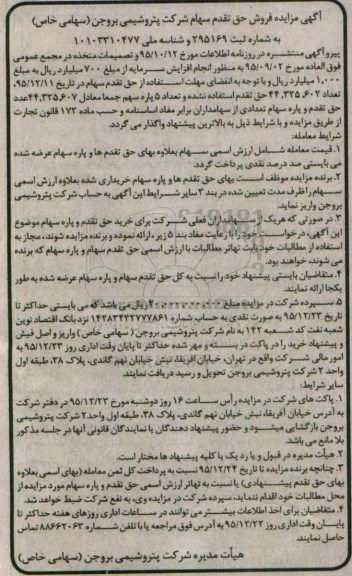 آگهی مزایده فروش حق تقدم سهام شرکت پتروشیمی بروجن (سهامی خاص)
به شماره ثبت ۲۹۵۱۶۹ و شناسه ملی ۱۰۱۰۳۳۱۰۴۷۷
پیرو آگهی منتشره در روزنامه اطلاعات مورخ ۹۵/۱۰/۱۲ و تصمیمات متخذه در مجمع عمومی
فوق العاده مورخ ۹۵/۰۹/۰۲ به منظور انجام افزایش سرمایه از مبلغ ۷۰۰ میلیارد ریال به مبلغ
۱،۰۰۰ میلیارد ریال و با توجه به انقضای مهلت استفاده از حق تقدم سهام در تاریخ ۹۵/۱۲/۱۱،
تعداد ۴۴،۳۲۵،۶۰۲ حق تقدم استفاده نشده و تعداد ۵ پاره سهم جمعا معادل ۴۴،۳۲۵،۶۰۷ عدد
حق تقدم و پاره سهام تعدادی از سهامداران برابر مفاد اساسنامه و حسب ماده ۱۷۲ قانون تجارت
از طریق مزایده و با شرایط ذیل به بالاترین پیشنهاد واگذار می گردد.
شرایط معامله:
۱. قیمت معامله شامل ارزش اسمی سهام بعلاوه بهای حق تقدم ها و پاره سهام عرضه شده
می بایستی صد درصد نقدی پرداخت گردد.
۲. برنده مزایده موظف است بهای حق تقدم ها و پاره سهام خریداری شده بعلاوه ارزش اسمی
سهام را ظرف مدت تعیین شده در بند ۳ سایر شرایط این آگهی به حساب شرکت پتروشیمی
بروجن واریز نماید.
۳. در صورتی که هریک از سهامداران فعلی شرکت برای خرید حق تقدم و پاره سهام موضوع
این آگهی، درخواست خود را با رعایت مفاد بند ۵ زیر، ارائه نموده و برنده مزایده شوند، مجاز به
استفاده از مطالبات خود بابت تهاتر مطالبات با ارزش اسمی حق تقدم سهام و پاره سهام که برنده
می شوند، خواهند بود.
۴. متقاضیان بایستی پیشنهاد خود را نسبت به کل حق تقدم سهام و پاره سهام عرضه شده به طور
یکجا ارائه نمایند.
۵. سپرده شرکت در مزایده مبلغ ریال می باشد که می بایستی حداکثر تا
تاریخ ۹۵/۱۲/۲۳ به صورت نقدی به حساب شماره ۱۴۲۸۳۴۳۲۷۷۷۸۶۱ نزد بانک اقتصاد نوین
شعبه نفت کد شعبه ۱۴۲ به نام شرکت پتروشیمی بروجن (سهامی خاص) واریز و اصل فیش
و پیشنهاد خرید را در پاکت در بسته و مهر شده حداکثر تا پایان وقت اداری روز ۹۵/۱۲/۲۳ به
امور مالی شرکت واقع در تهران، خیابان آفریقا، نبش خیابان نهم گاندی، پلاک ۳۸، طبقه اول
واحد ۲ شرکت پتروشیمی بروجن تحویل و رسید دریافت نمایند.
سایر شرایط:
۱. پاکت های شرکت در مزایده رأس ساعت ۱۶ روز دوشنبه مورخ ۹۵/۱۲/۲۳ در دفتر شرکت
به آدرس خیابان آفریقا، نبش خیابان نهم گاندی، پلاک ۳۸، طبقه اول واحد ۲ شرکت پتروشیمی
بروجن بازگشایی میشود و حضور پیشنهاد دهندگان یا نمایندگان قانونی آنها در جلسه مذکور
بلا مانع می باشد.
۲. هیأت مدیره در قبول و یا رد یک یا کلیه پیشنهاد ها مختار است.
۳. چنانچه برنده مزایده تا تاریخ ۹۵/۱۲/۲۴ نسبت به پرداخت کل ثمن معامله (بهای اسمی بعلاوه
بهای حق تقدم پیشنهادی) یا نسبت به تهاتر ارزش اسمی حق تقدم و پاره سهام مورد مزایده از
محل مطالبات خود اقدام ننماید، سپرده شرکت در مزایده وی، به نفع شرکت ضبط خواهد شد.
۴. متقاضیان برای اخذ اطلاعات بیشتر می توانند در ساعات اداری روزهای هفته حداکثر تا
پایان وقت اداری روز ۹۵/۱۲/۲۲ به آدرس فوق مراجعه یا با تلفن شماره ۸۸۶۶۲۰۶۳ تماس
حاصل نمایند.
هیأت مدیره شرکت پتروشیمی بروجن (سهامی خاص)